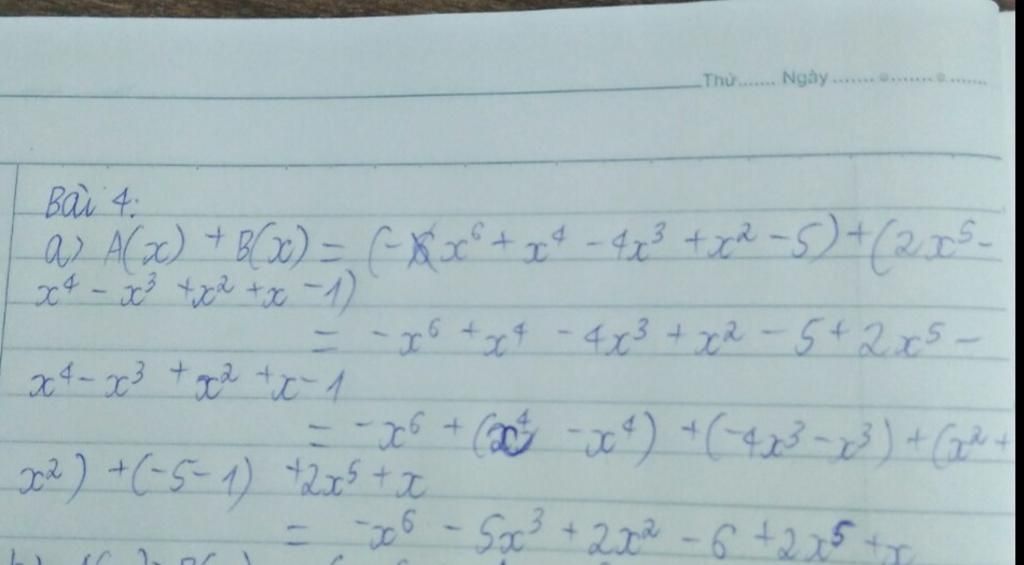 Thứ....... Ngày ....................
Bài 4:
a) A(x) + B(x) = (-x⁶ + x⁴ - 4x³ + x² - 5) + (2x⁵ -
x⁴ - x³ + x² + x - 1)
= -x⁶ + x⁴ - 4x³ + x² - 5 + 2x⁵ -
x⁴ - x³ + x² + x - 1
= -x⁶ + (x⁴ - x⁴) + (-4x³ - x³) + (x² +
x²) + (-5 - 1) + 2x⁵ + x
= -x⁶ - 5x³ + 2x² - 6 + 2x⁵ + x